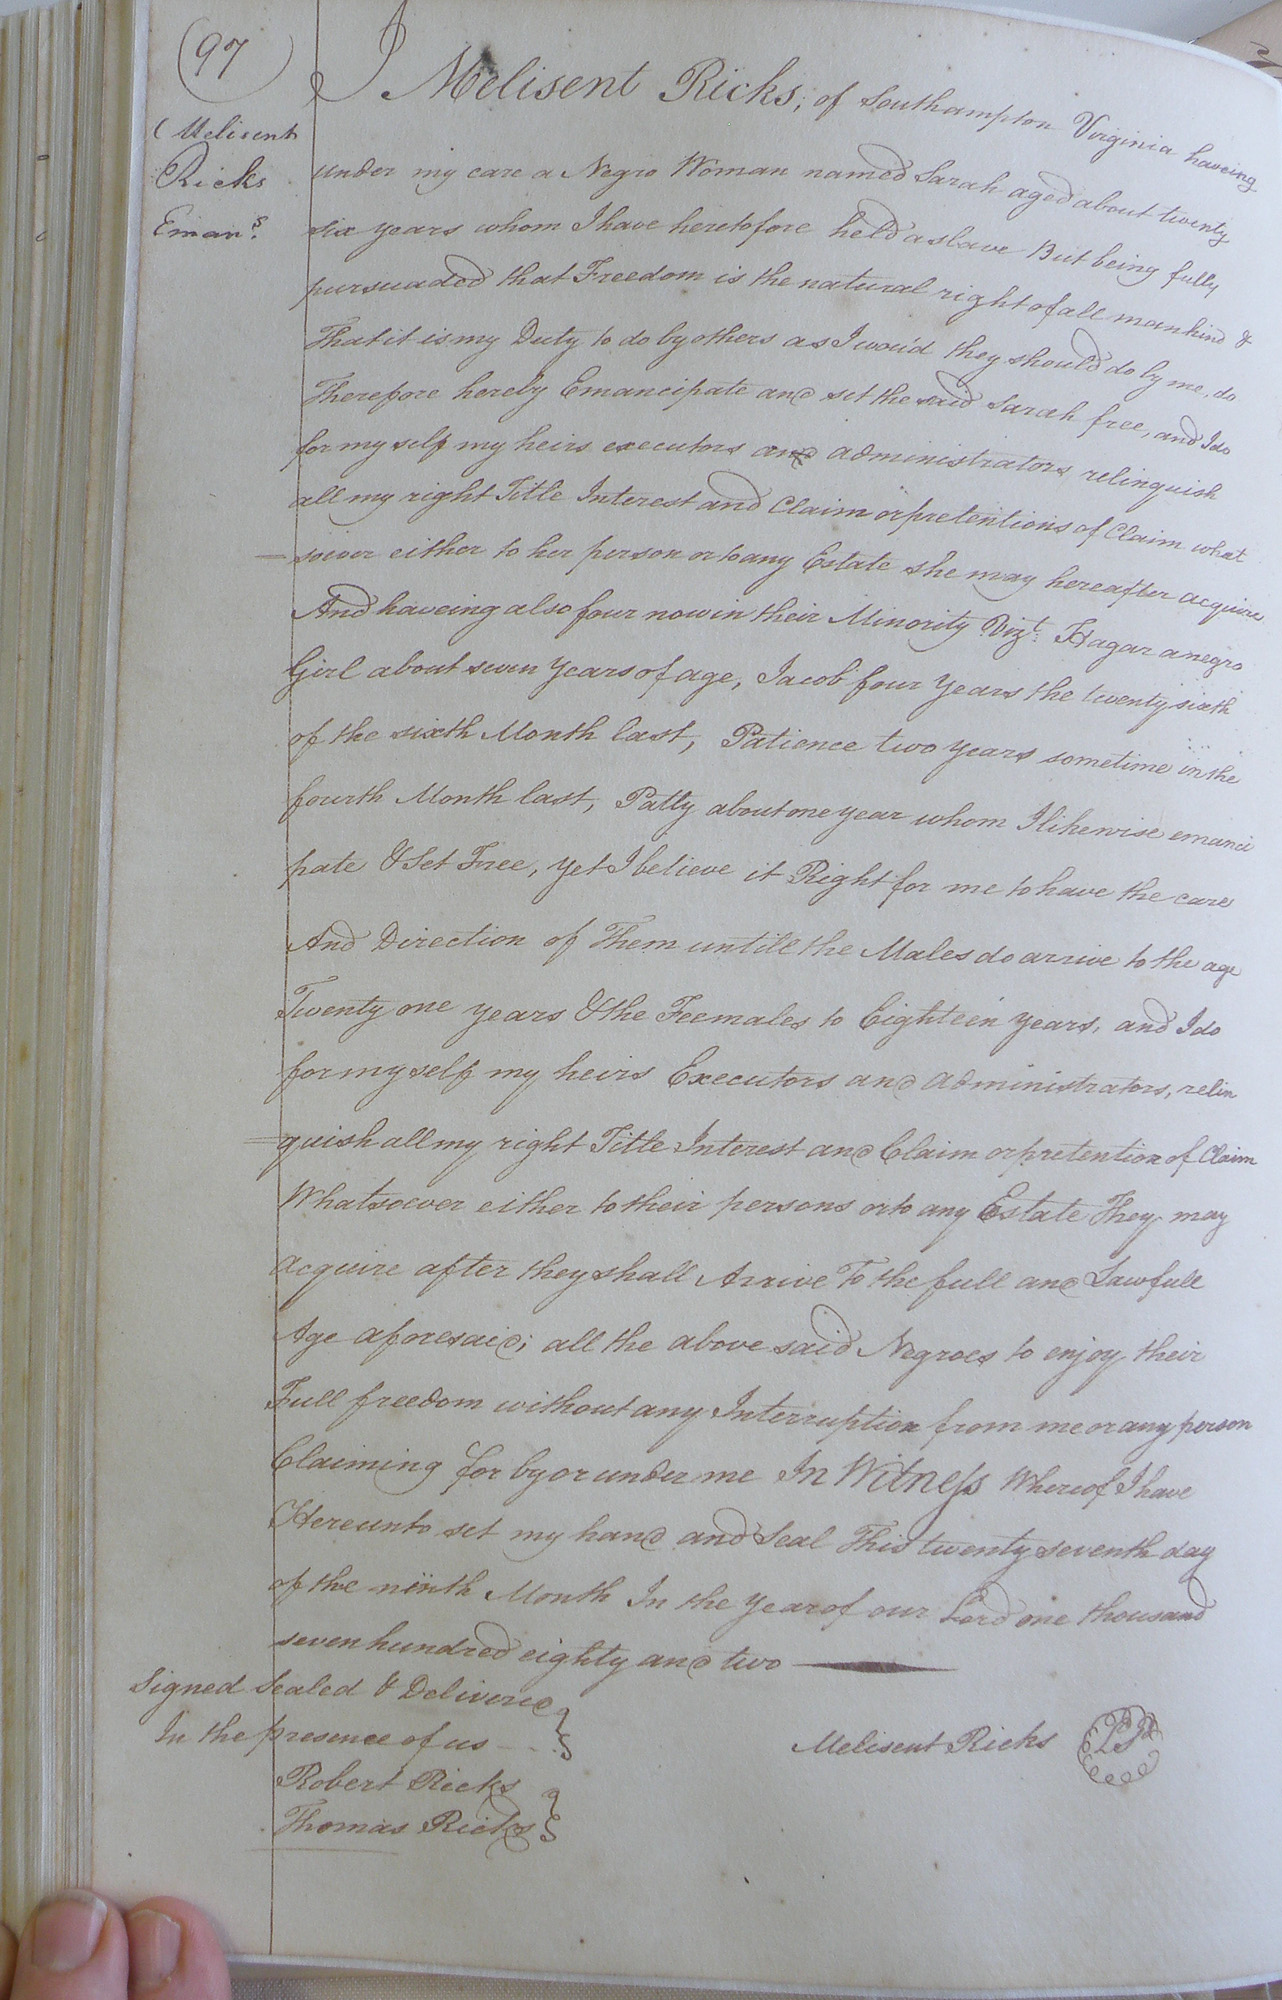 (97)
(Melisent
Ricks
Eman.s
I Melisent Ricks; of Southampton Virginia haveing
under my care a Negro Woman named Sarah aged about twenty
six years whom I have heretofore held a slave But being fully
pursuaded that Freedom is the natural right of all mankind &
That it is my Duty to do by others as I wou'd they should do by me, do
Therefore hereby Emancipate and set the said Sarah free, and I do
for my self my heirs executors and administrators relinquish
all my right Title Interest and Claim or pretentions of Claim what
=soever either to her person or to any Estate she may hereafter acquire
And haveing also four now in their Minority Vizt. Hagar a negro
Girl about seven Years of age, Jacob four Years the twenty sixth
of the sixth Month last, Patience two years sometime in the
fourth Month last, Patty about one year whom I likewise emanci
pate & Set Free, yet I believe it Right for me to have the care
And Direction of Them untill the Males do arrive to the age
Twenty one years & the Feemales to Eighteen years, and I do
for my self my heirs Executors and administrators, relin
=quish all my right Title Interest and Claim or pretention of Claim
Whatsoever either to their persons or to any Estate They may
acquire after they shall Arrive To the full and Lawfull
Age aforesaid; all the above said Negroes to enjoy their
Full freedom without any Interruption from me or any person
Claiming for by or under me In Witness Whereof I have
Hereunto set my hand and Seal This twenty seventh day
of the ninth Month In the Year of our Lord one thousand
seven hundred eighty and two
Signed Sealed & Delivered
In the presence of us
Melisent Ricks LS
Robert Ricks
Thomas Ricks